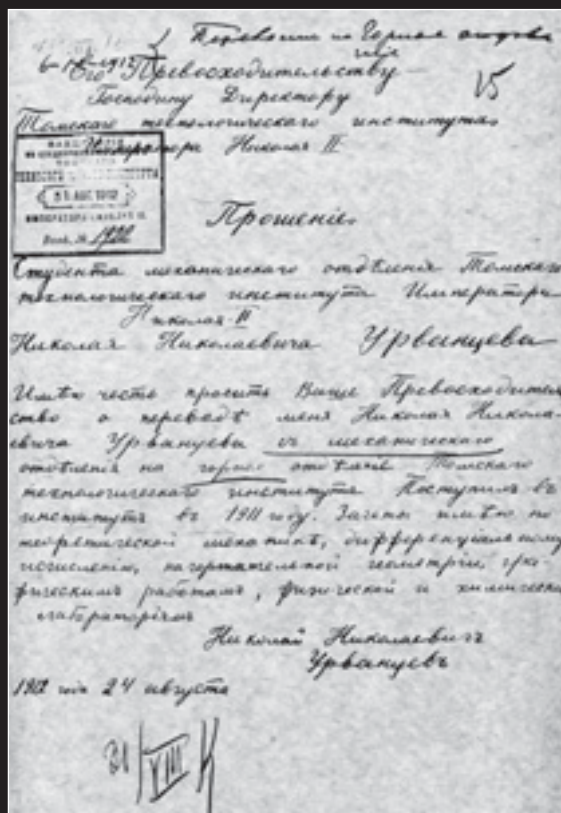 Переводится на Горное
6-IX-1912
Его Превосходительству
15
Господину Директору
Томскаго технологическаго института
Императора Николая II
ИМПЕРАТОРА НИКОЛАЯ II
31 АВГ 1912
Вход. №
Прошеніе
Студента механическаго отдѣленія Томскаго
технологическаго института Императора
Николая II
Николая Николаевича Урванцева
Имѣю честь просить Ваше Превосходитель
ство о переводѣ меня Николая Никола-
евича Урванцева съ механическаго
отдѣленія на горное отдѣленіе Томскаго
технологическаго института. Поступилъ въ
институтъ въ 1911 году. Зачеты имѣю по
теоретической механикѣ, дифференціальному
исчисленію, начертательной геометріи, гра-
фическимъ работамъ, физической и химической
лабораторіямъ
Николай Николаевичъ
Урванцевъ
1912 года 24 августа
31/VIII